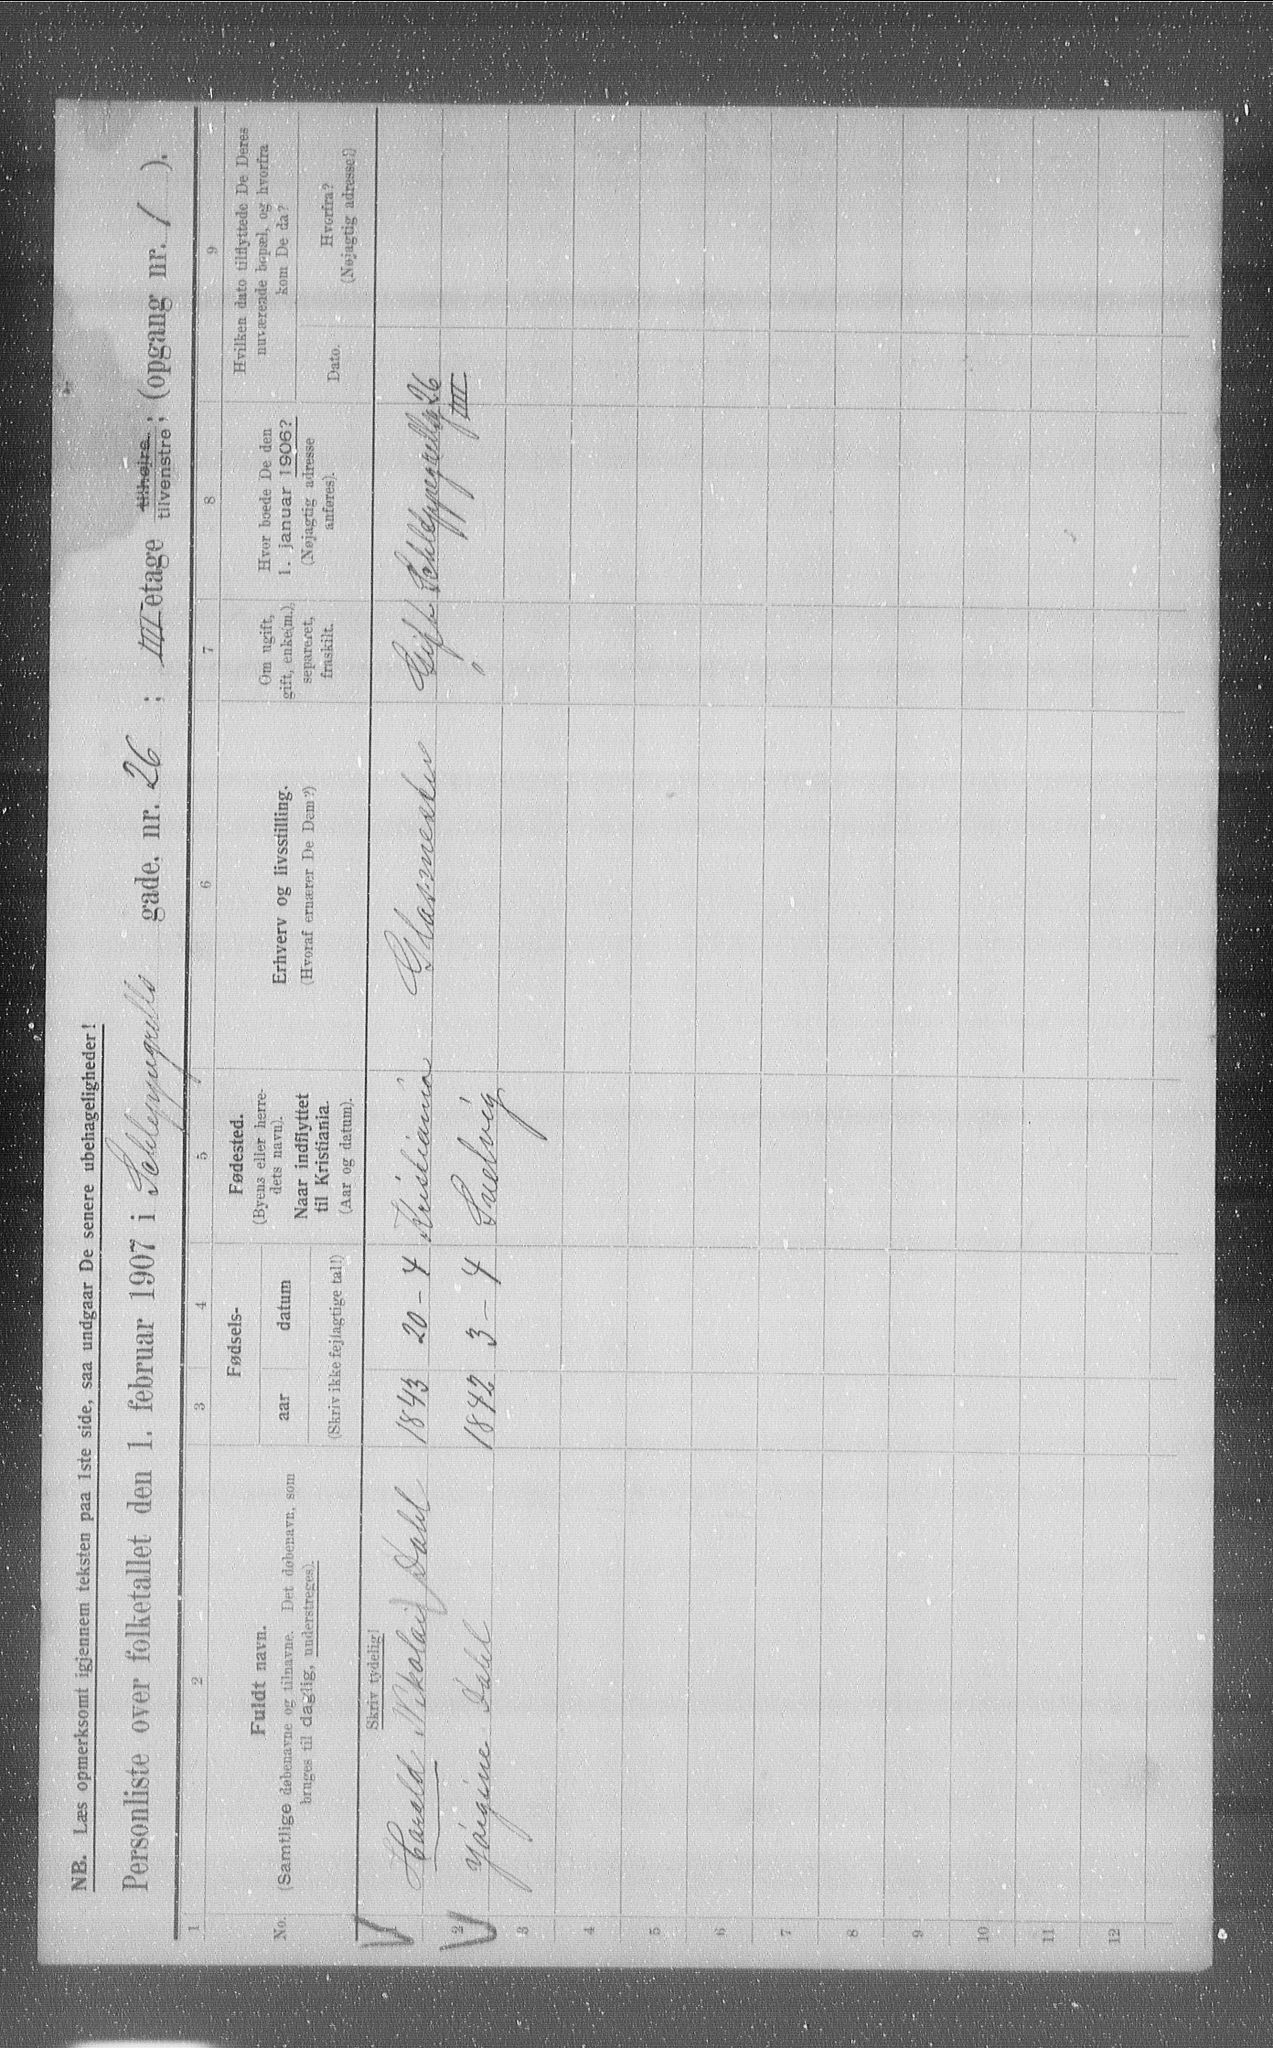 NB. Læs opmerksomt igjennem teksten paa 1ste side, saa undgaar De senere ubehageligheder!
Personliste over folketallet den 1. februar 1907 i Schleppegrells gade, nr. 26 ; III etage tilhøire tilvenstre ; (opgang nr. 1 ).
1 2 3 4 5 6 7 8 9
No.
Fuldt navn.
(Samtlige døbenavne og tilnavne. Det døbenavn, som
bruges til daglig, understreges).
Fødsels-
aar datum
(Skriv ikke fejlagtige tal!)
Fødested.
(Byens eller herre-
dets navn).
Naar indflyttet
til Kristiania.
(Aar og datum).
Erhverv og livsstilling.
(Hvoraf ernærer De Dem?)
Om ugift,
gift, enke(m.),
separeret,
fraskilt.
Hvor boede De den
1. januar 1906?
(Nøjagtig adresse
anføres).
Hvilken dato tilflyttede De Deres
nuværende bopæl, og hvorfra
kom De da?
Dato.
Hvorfra?
(Nøjagtig adresse!)
Skriv tydelig!
1 Harald Nikolai Dahl 1843 20-4 Kristiania Glasmester Gift Schleppegrellsg 26
2 Dahl 1842 3-4 Snelvig " III
3
4
5
6
7
8
9
10
11
12